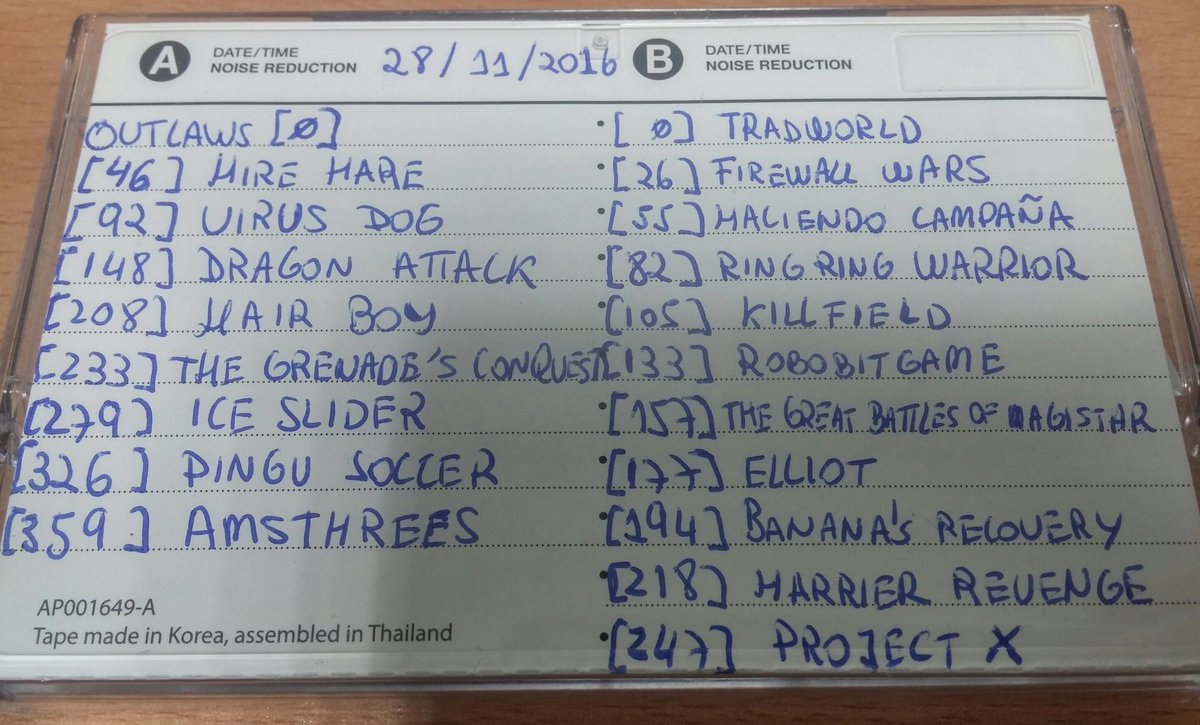 A DATE/TIME
NOISE REDUCTION 28/11/2016
OUTLAWS [0]
[46] HIRE HARE
[92] VIRUS DOG
[148] DRAGON ATTACK
[208] HAIR BOY
[233] THE GRENADE'S CONQUEST
[279] ICE SLIDER
[326] PINGU SOCCER
[359] AMSTHREES
AP001649-A
Tape made in Korea, assembled in Thailand
B DATE/TIME
NOISE REDUCTION
[0] TRADWORLD
[26] FIREWALL WARS
[55] HACIENDO CAMPAÑA
[82] RING RING WARRIOR
[105] KILLFIELD
[133] ROBOBITGAME
[157] THE GREAT BATTLES OF MAGISTAR
[177] ELLIOT
[194] BANANA'S RECOVERY
[218] HARRIER REVENGE
[247] PROJECT X